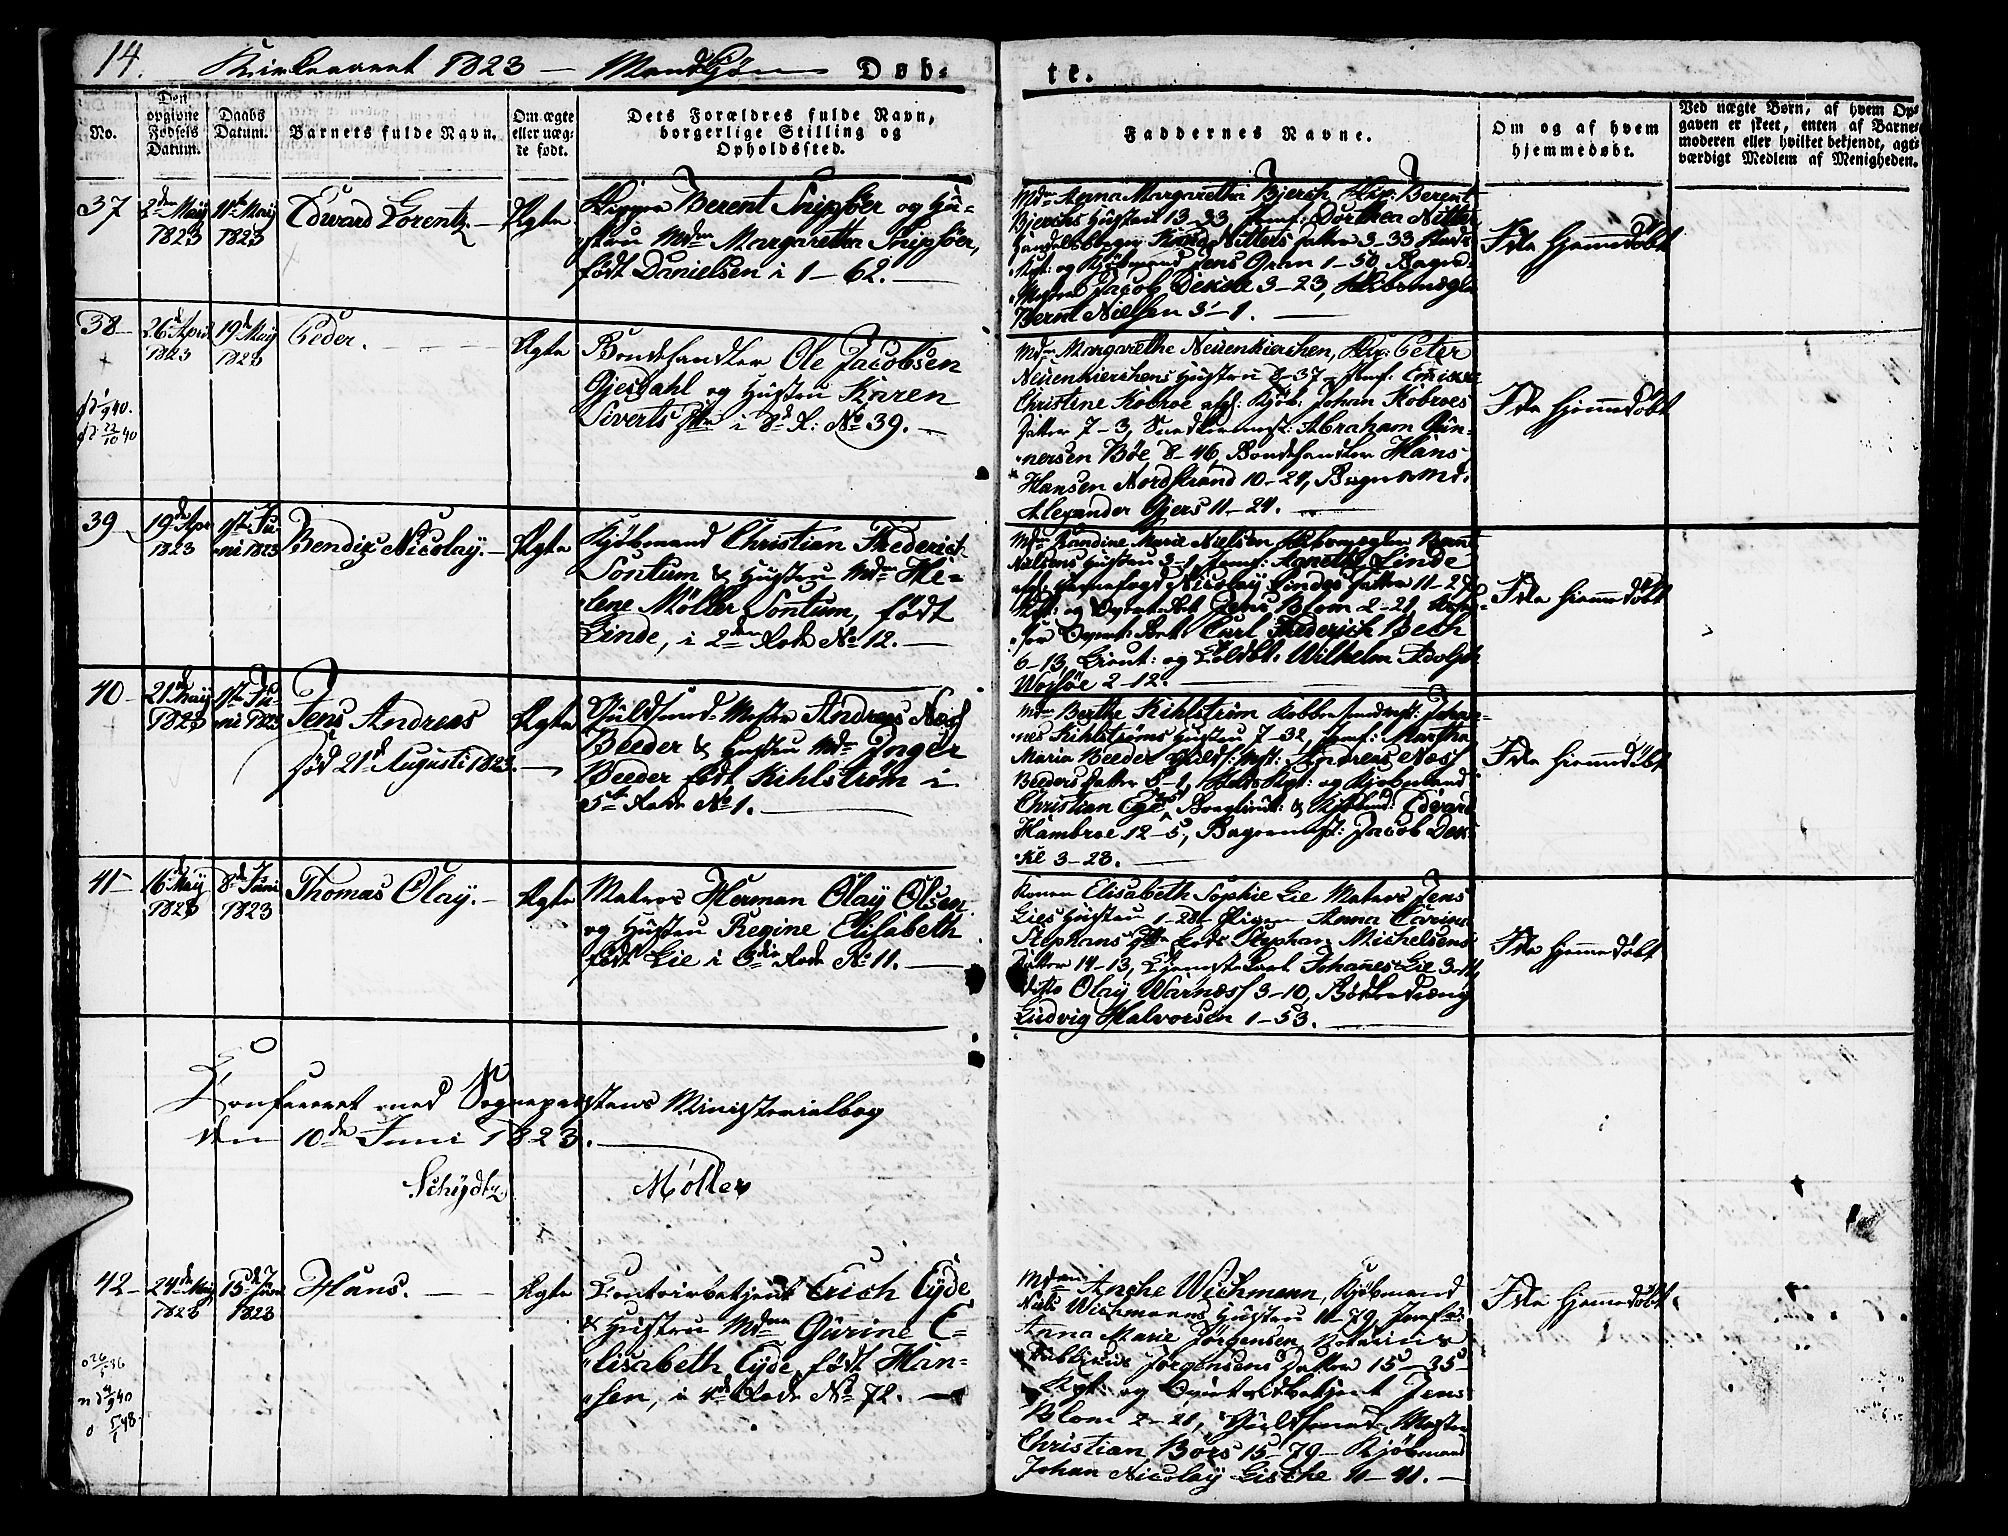 14. Kirkeaaret 1823 – Mandkjøn Døb-
te.
No.
Den opgivne Fødsels Datum.
Daabs Datum.
Barnets fulde Navn.
Om ægte eller uæg-te født.
Dets Forældres fulde Navn, borgerlige Stilling og Opholdssted.
Faddernes Navne.
Om og af hvem hjemmedøbt.
Ved uægte Børn, af hvem Op-
gaven er skeet, enten af Barne-
moderen eller hvilket bekjendt, agt-
værdigt Medlem af Menigheden.
37
2den Maÿ 1823
11te Maÿ 1823
Edward Lorentz. –
Ægte
Skipper Berent Snipsøer og Hu-
stru Mdm Margaretha Snipsøer,
født Danielsen i 1–62. –
Mdm Anna Margaretha Bjerch, Skip: Berent
Bjerchs Hustrue 13–33, Jomf: Dorthea Nitter
Nitters Datter 3–33
og Kjøbmand Jens Gran 1–50, Bager-
Mester Jacob Dekke 3–23,
Bernt Nielsen 3–1. –
Ikke hjemmedøbt
38
26d April 1823
19d May 1823
Peder. –
Ægte
Bondehandler Ole Jacobsen
Gjesdahl og Hustru Karen
Siverts Dtr i 8d R: No 39. –
Mdm Margarethe Neuenkirchen, Skip: Peter
Neuenkirchens Hustru 8–37 – Jomf:
Christine Kobroe afg: Kjøb: Johan Kobroes
Datter 7–3, Snedkermest: Abraham Gun-
nersen Bøe 8–46, Bondehandler Hans
Hansen Nordstrand 10–21, Bagermd:
Alexander Gjers 11–24. –
Ikke hjemmedøbt
39
19de Apr 1823
1ste Ju-
ni 1823
Bendix Nicolaÿ. –
Ægte
Kjøbmand Christian Frederich
Sontum & Hustru Mdm He-
lene Møller Sontum, født
Linde, i 2den Rode No 12. –
Mdm Randine Marie Nielsen Bernt
Nielsens Hustru 3–1, Jomf: Agnethe Linde
Nicolaÿ Lindes Datter 11–
Kpt: og Jens Blom 2–21,
Carl Frederich Bech
6–13, Lieut: og Toldbt: Wilhelm Adolph
Worsøe 2–12. –
Ikke hjemmedøbt
40
21de Maÿ 1823
1ste Ju-
ni 1823
Jens Andreas
fød 21d Augusti 1823.
Ægte
Guldsmed-Mester Andreas Næss
Beeder & Hustru Mdm Inger
Beeder født Kihlstrøm i
5te Rode No 1. –
Mdm Berthe Kihlstrøm Kobbersmedmst: Johan-
nes Kihlstrøms Hustru 7–32, Jomf: Martha
Maria Beeder Guld: Mst: Andreas Næss
Beeders Datter 5–1, Kpt: og Kjøbmand
Christian Ege & Kjøbmd: Edvard
Hambroe 12–5, Bagermst: Jacob Dek-
ke 3–23. –
Ikke hjemmedøbt
41
16de Maÿ 1823
8de Juni 1823
Thomas Olay. –
Ægte
Matros Herman Olaÿ Olsen
og Hustru Regine Elisabeth
født Lie i Rode No 11. –
Konen Elisabeth Sophie Lie Matros Jens
Lies Hustru 1–28 Pigen Anna
Stephans Dtr Stephan Michelsens
Datter 14–13, Johannes Lie
ditto Olaÿ Warness 3–10, Bødkerdreng
Ludvig Halvorsen 1–53. –
Ikke hjemmedøbt
Konfereret med Sognepræstens Ministerialbog
den 10de Juni 1823. –
Schÿdtz Møller
42
24de Maÿ 1823
15de Juni 1823
Hans. –
Ægte
Contoirbetjent Erich Eyde
& Hustru Mdm Gurine E-
lisabeth Eyde, født Han-
sen, i Rode No 72. –
Mdm Anche Wichmann, Kjøbmand
Niels Wichmanns Hustru 11–79, Jomfru
Anna Marie Jørgensen, Notarius
Publicus Jørgensens Datter 15–35
Kpt: og Jens
Blom 2–21, Guldsmed-Mester
Christian Børs 15–79 – Kjøbmand
Johan Nicolaÿ Lische 11–41. –
Ikke hjemmedøbt.